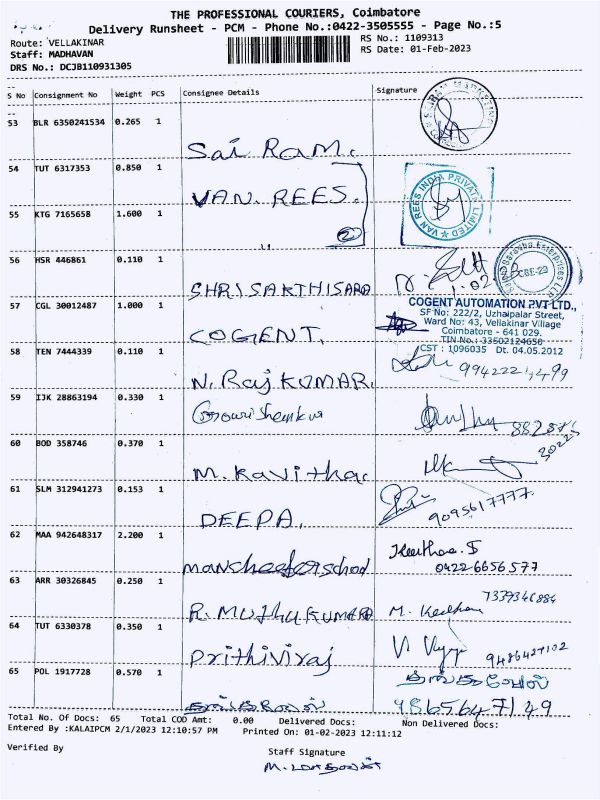 THE PROFESSIONAL COURIERS, Coimbatore
Delivery Runsheet - PCM - Phone No.:0422-3505555 - Page No.:5
Route: VELLAKINAR
RS No.: 1109313
Staff: MADHAVAN
RS Date: 01-Feb-2023
DRS No.: DCJB110931305
S No Consignment No Weight PCS Consignee Details Signature
53 BLR 6350241534 0.265 1
Sai Ram.
54 TUT 6317353 0.850 1
VAN REES.
VAN REES INDIA PRIVATE LIMITED
55 KTG 7165658 1.600 1
"
2
56 HSR 446861 0.110 1
SHRISAKTHISARA
57 CGL 30012487 1.000 1
COGENT.
COGENT AUTOMATION PVT LTD.,
SF No: 222/2, Uzhaipalar Street,
Ward No: 43, Vellakinar Village
Coimbatore - 641 029.
TIN No.: 33502124650
CST : 1096035 Dt. 04.05.2012
58 TEN 7444339 0.110 1
N. Raj KUMAR.
59 IJK 28863194 0.330 1
Gowrishankar
60 BOD 358746 0.370 1
M. Kavitha
61 SLM 312941273 0.153 1
DEEPA.
9095617777
62 MAA 942648317 2.200 1
Keerthae. S
0422 6656 577
63 ARR 30326845 0.250 1
R. MUTHUKUMARA
7339346884
64 TUT 6330378 0.350 1
Prithiviraj
9486427102
65 POL 1917728 0.570 1
தங்கவேல்
9865647149
Total No. Of Docs: 65 Total COD Amt: 0.00 Delivered Docs: Non Delivered Docs:
Entered By :KALAIPCM 2/1/2023 12:10:57 PM Printed On: 01-02-2023 12:11:12
Verified By
Staff Signature